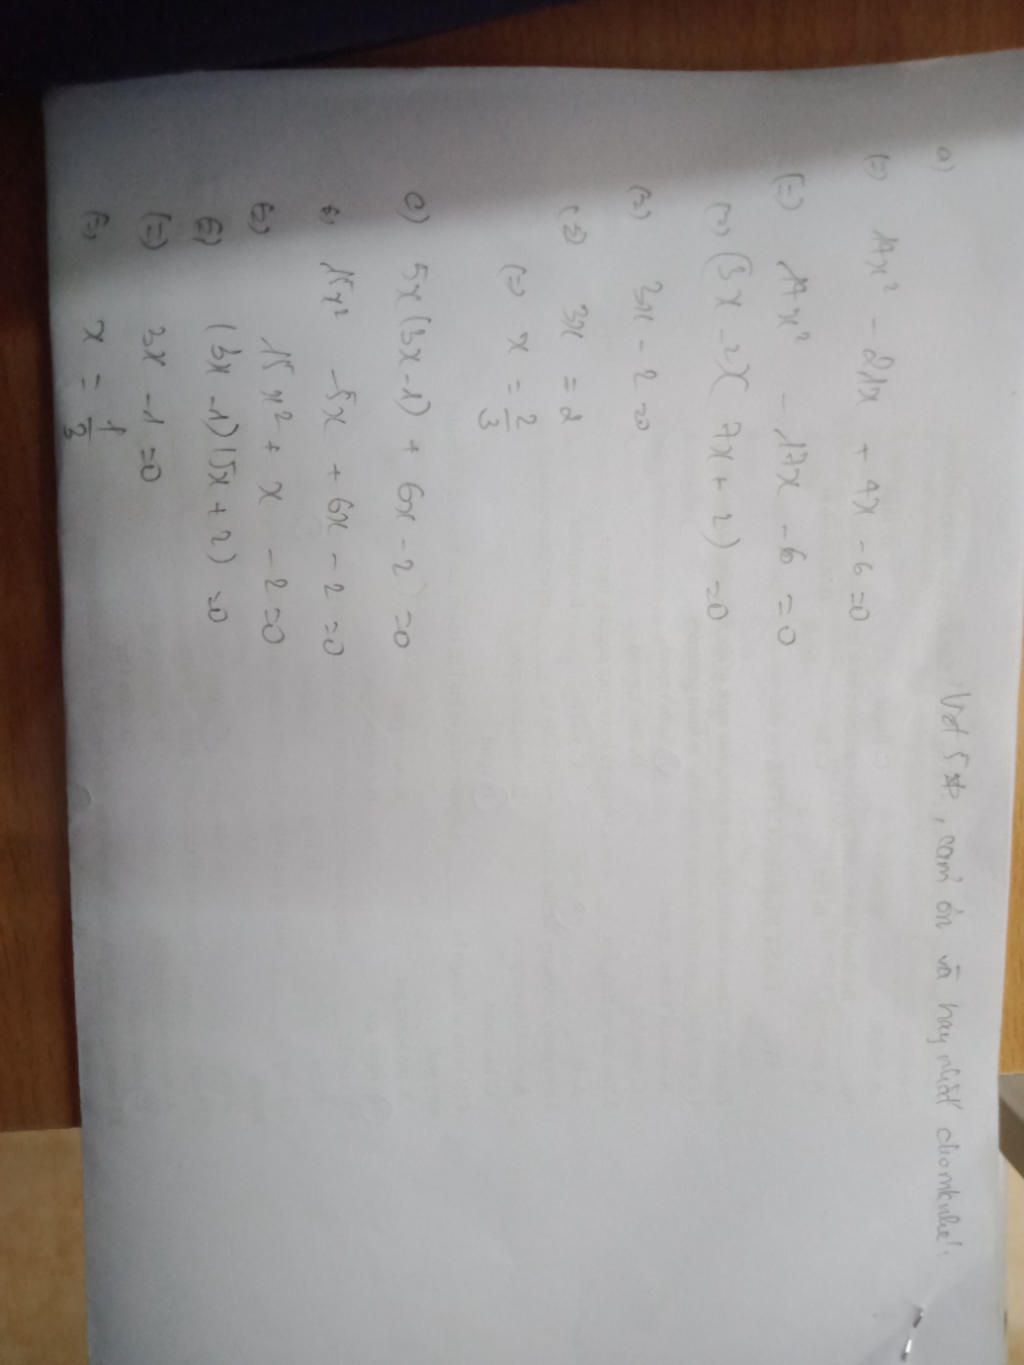 Vot 5*, cảm ơn và hay nhất cho mk nhé!
a)
(=) 14x² - 21x + 4x - 6 = 0
(=) 14x² - 17x - 6 = 0
(=) (3x - 2)( 7x + 2) = 0
(=) 3x - 2 = 0
(=) 3x = 2
(=) x = 2/3
c) 5x(3x - 1) + 6x - 2 = 0
(=) 15x² - 5x + 6x - 2 = 0
(=) 15x² + x - 2 = 0
(=) (3x - 1)(5x + 2) = 0
(=) 3x - 1 = 0
(=) x = 1/3